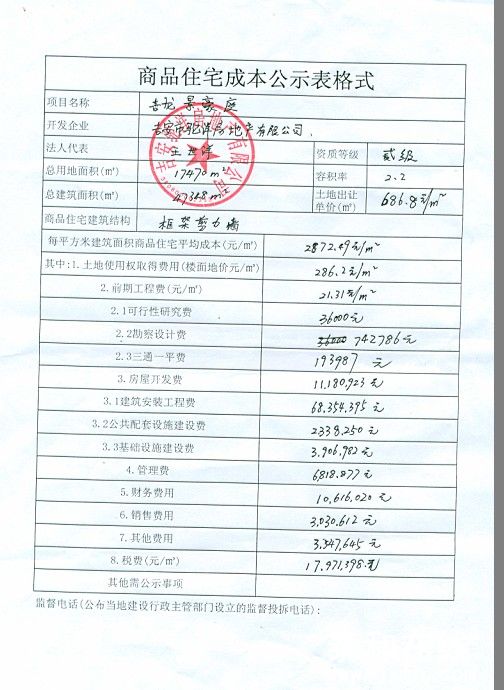 商品住宅成本公示表格式
项目名称 吉龙景豪庭
开发企业 吉安市 地产有限公司.
法人代表 资质等级 贰级
总用地面积(㎡) 17470m² 容积率 2.2
总建筑面积(㎡) 47348m² 土地出让单价(㎡) 686.8元/m²
商品住宅建筑结构 框架剪力墙
每平方米建筑面积商品住宅平均成本(元/㎡) 2872.49元/m²
其中:1.土地使用权取得费用(楼面地价元/㎡) 286.2元/m²
2.前期工程费(元/㎡) 21.31元/m²
2.1可行性研究费 36000元
2.2勘察设计费 36000 742786元
2.3三通一平费 193987 元
3.房屋开发费 11,180,923元
3.1建筑安装工程费 68,354,395元
3.2公共配套设施建设费 2338,250元
3.3基础设施建设费 3,906,982元
4.管理费 6818,877元
5.财务费用 10,616,020元
6.销售费用 3,030,612元
7.其他费用 3,347,645元
8.税费(元/㎡) 17,971,398元
其他需公示事项
监督电话(公布当地建设行政主管部门设立的监督投拆电话):